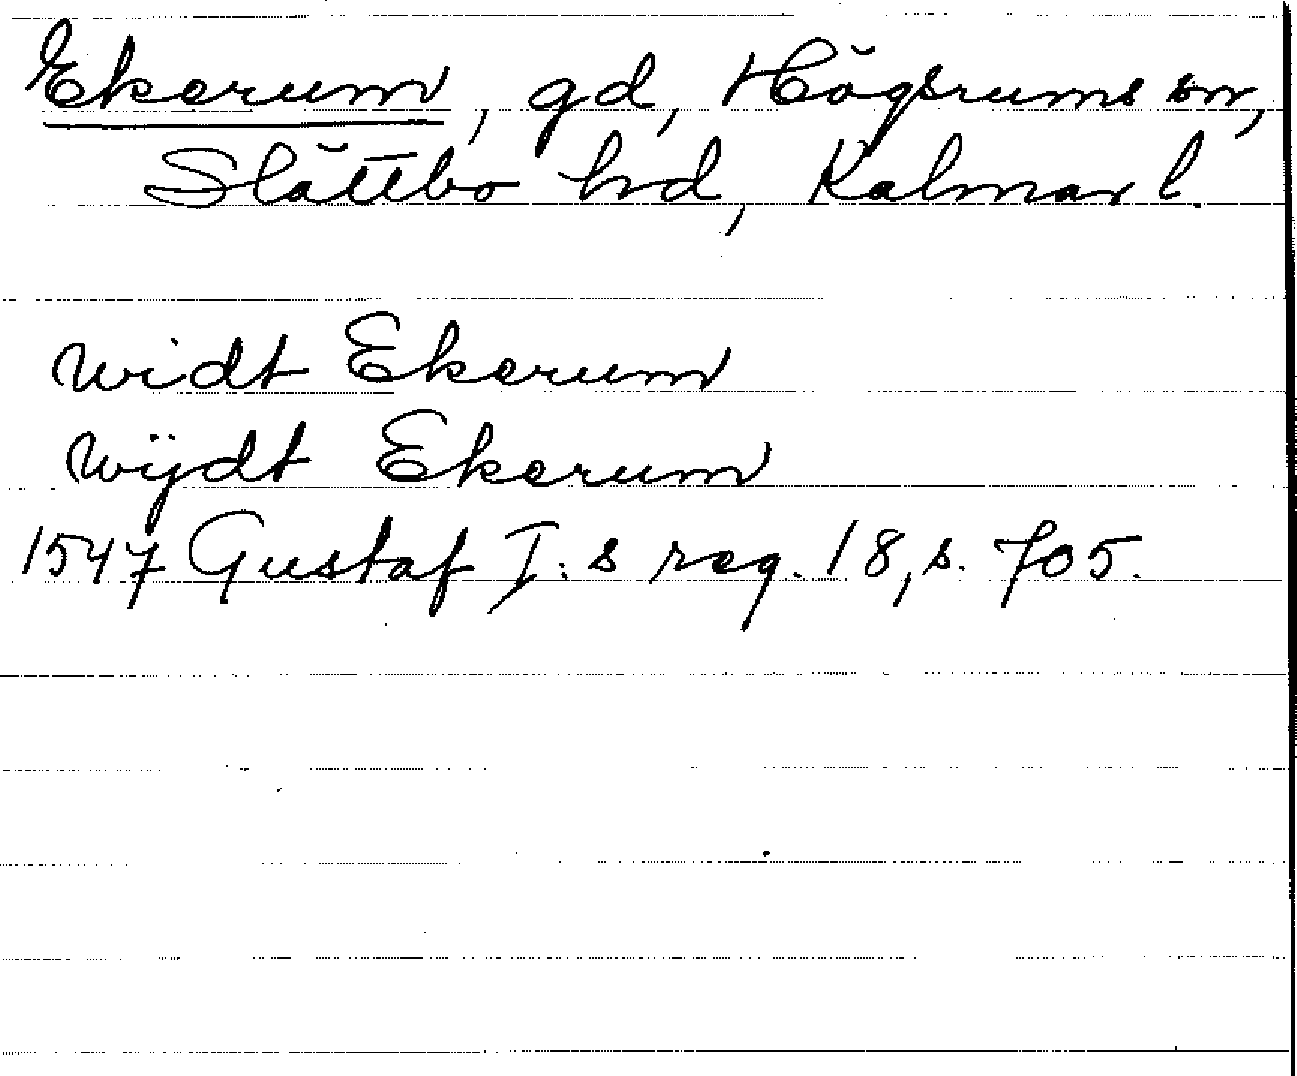 Ekerum, gd, Högsrums sn,
Slättbo hd, Kalmar l.
widt Ekerum
wÿdt Ekerum
1547 Gustaf I:s reg. 18, s. 705.